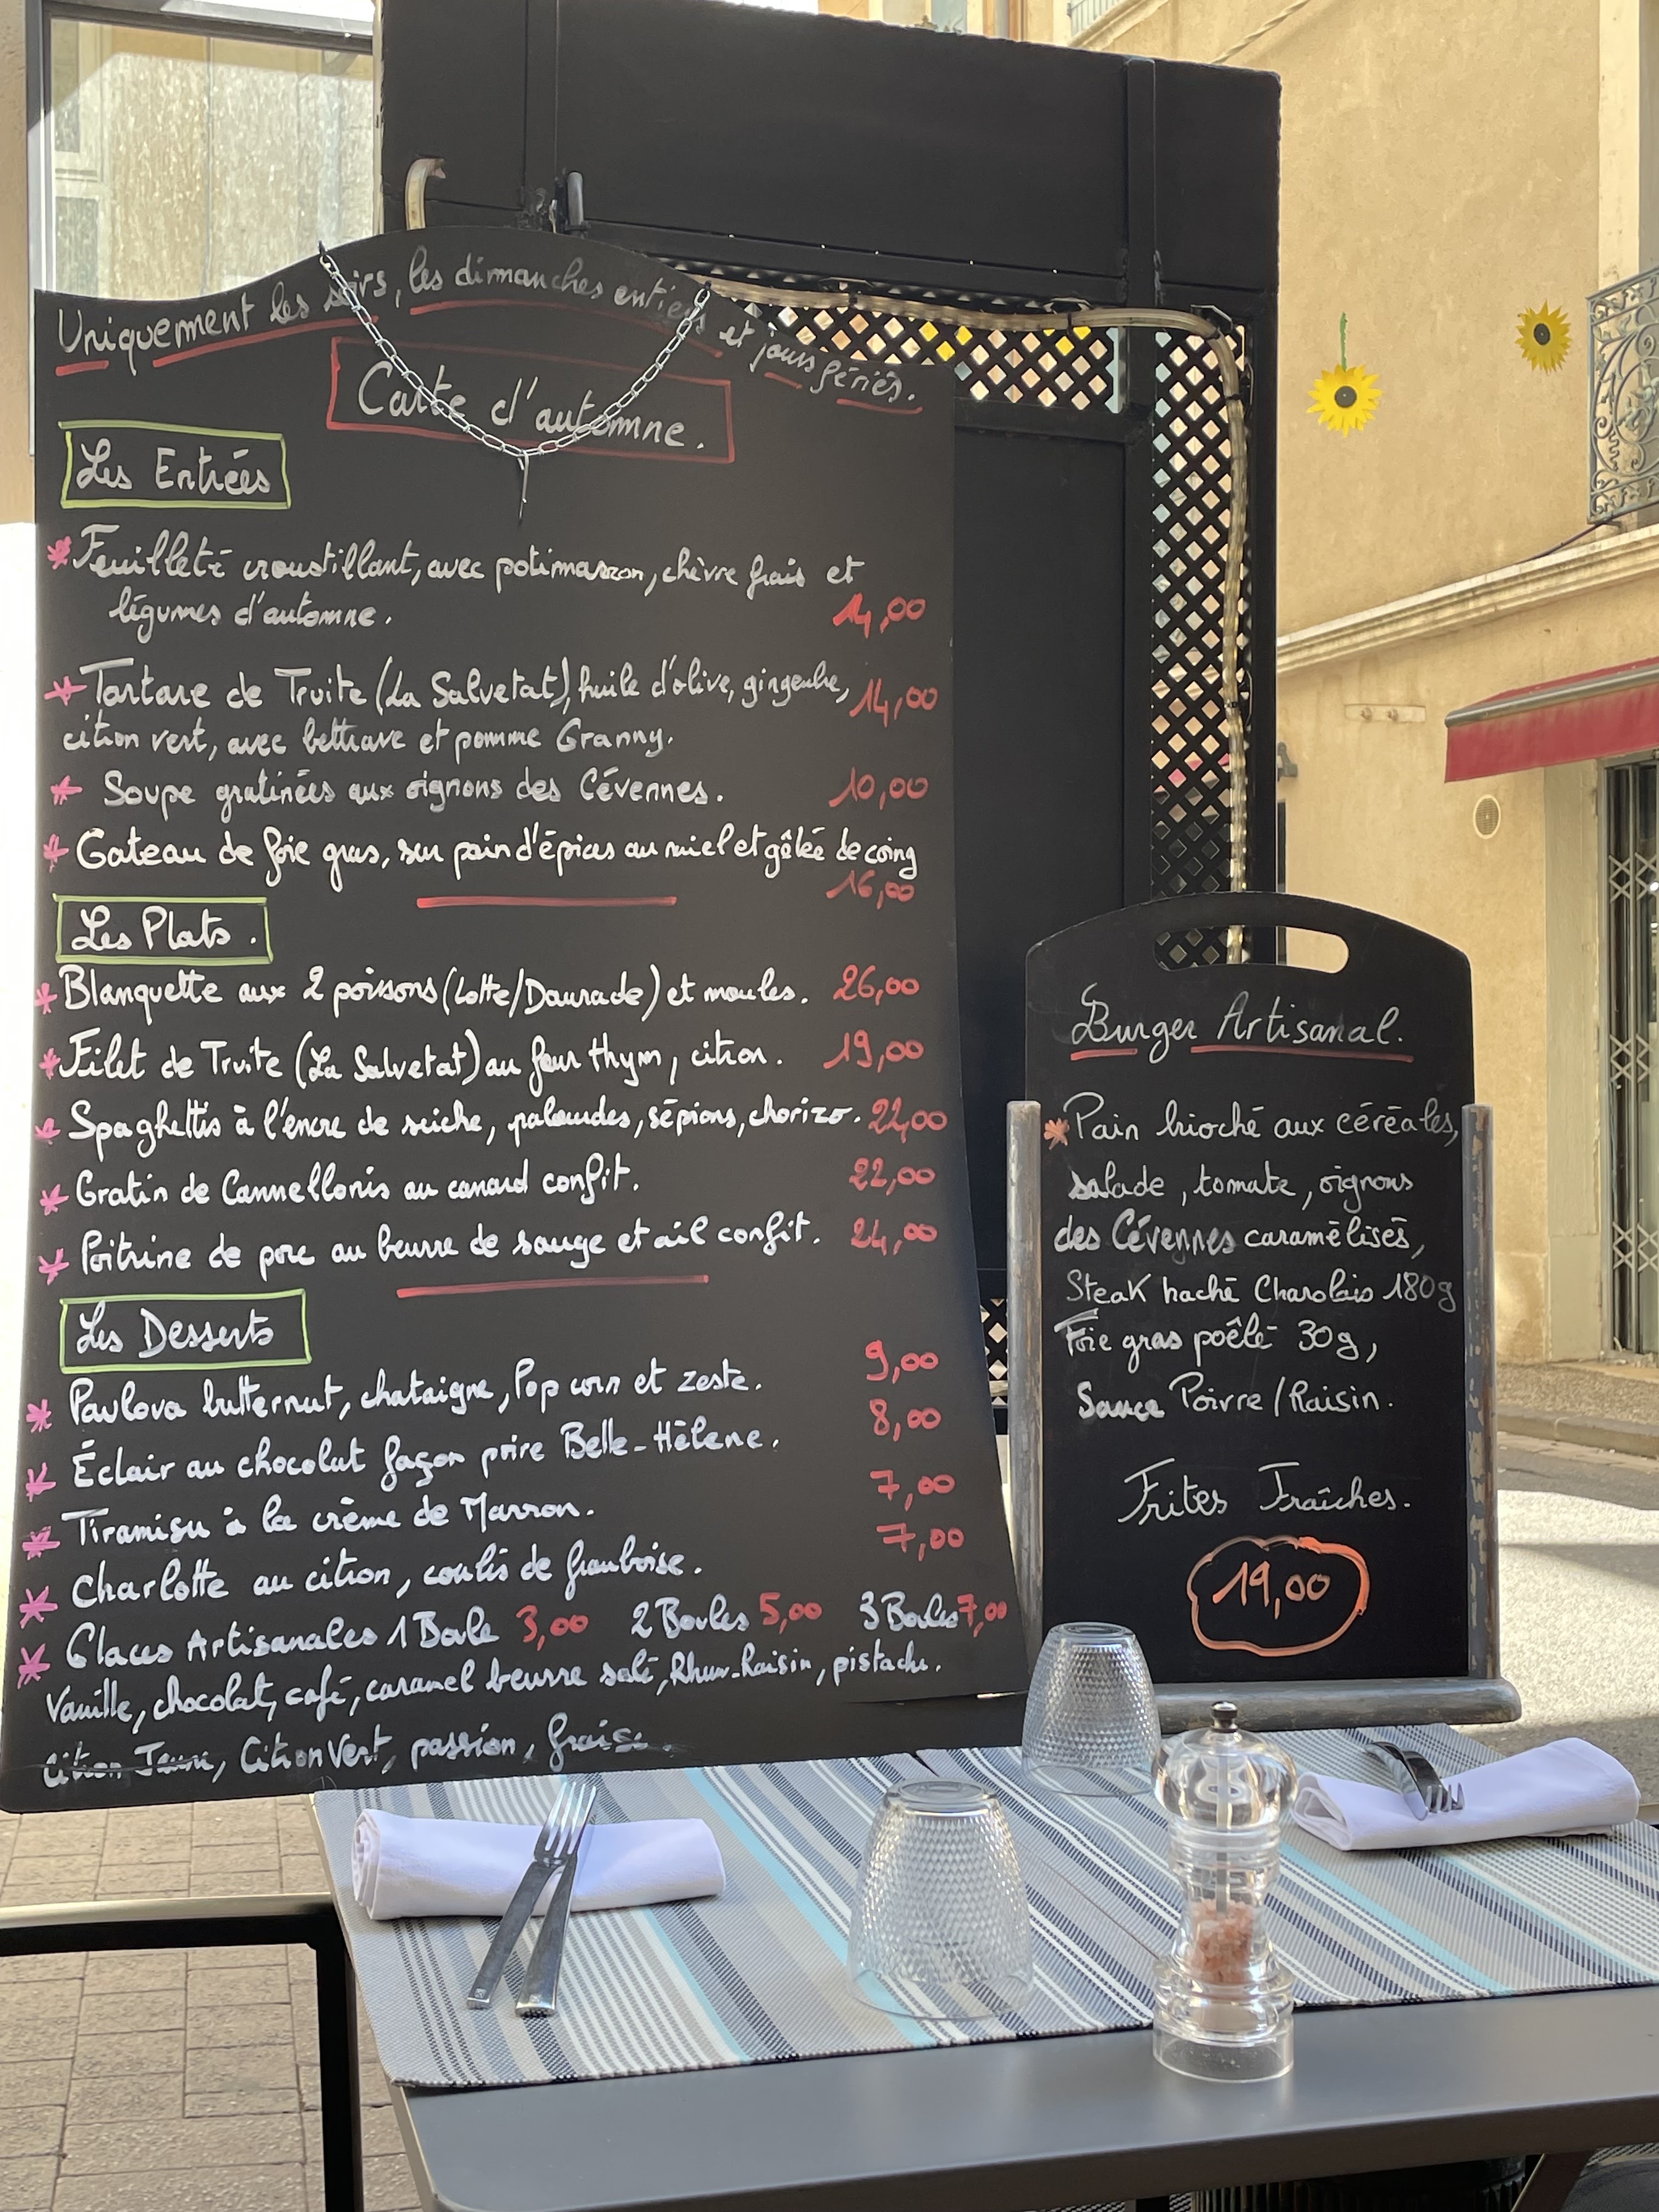 Uniquement les soirs, les dimanches entiers et jours fériés.
Carte d'automne.
Les Entrées
* Feuilleté croustillant, avec potimarron, chèvre frais et
légumes d'automne. 14,00
* Tartare de Truite (La Salvetat), huile d'olive, gingembre, 14,00
citron vert, avec bettrave et pomme Granny.
* Soupe gratinées aux oignons des Cévennes. 10,00
* Gateau de foie gras, sur pain d'épices au miel et gêlée de coing
16,00
Les Plats.
* Blanquette aux 2 poissons (Lotte/Daurade) et moules. 26,00
* Filet de Truite (La Salvetat) au four thym, citron. 19,00
* Spaghettis à l'encre de seiche, palourdes, sépions, chorizo. 22,00
* Gratin de Cannellonis au canard confit. 22,00
* Poitrine de porc au beurre de sauge et ail confit. 24,00
Les Desserts
* Pavlova butternut, chataigne, Pop corn et zeste. 9,00
* Éclair au chocolat façon poire Belle-Hélène. 8,00
* Tiramisu à la crème de Marron. 7,00
* Charlotte au citron, coulis de framboise. 7,00
* Glaces Artisanales 1 Boule 3,00 2 Boules 5,00 3 Boules 7,00
Vanille, chocolat, café, caramel beurre salé, Rhum-Raisin, pistache.
Citron Jaune, Citron Vert, passion, fraise.
Burger Artisanal.
* Pain brioché aux céréales,
salade, tomate, oignons
des Cévennes caramélisés,
Steak haché Charolais 180g
Foie gras poêlé 30g,
Sauce Poivre/Raisin.
Frites Fraîches.
19,00